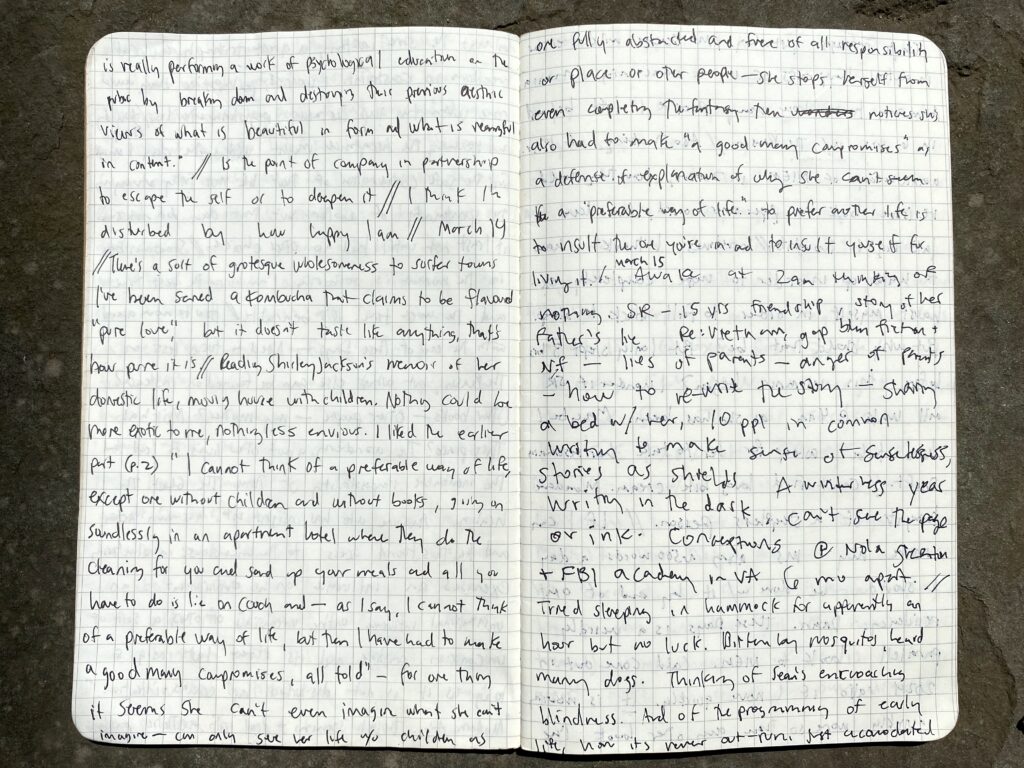 is really performing a work of psychological education on the
public by breaking down and destroying their previous aesthetic
views of what is beautiful in form and what is meaningful
in content." // Is the point of company in partnership
to escape the self or to deepen it // I think I'm
disturbed by how happy I am // March 14
// There's a sort of grotesque wholesomeness to surfer towns
I've been served a kombucha that claims to be flavoured
"pure love," but it doesn't taste like anything, that's
how pure it is // Reading Shirley Jackson's memoir of her
domestic life, moving house with children. Nothing could be
more exotic to me, nothing less envious. I liked the earlier
part (p.2) "I cannot think of a preferable way of life,
except one without children and without books, going on
soundlessly in an apartment hotel where they do the
cleaning for you and send up your meals and all you
have to do is lie on couch and — as I say, I cannot think
of a preferable way of life, but then I have had to make
a good many compromises, all told" — for one thing
it seems she can't even imagine what she can't
imagine — can only see her life w/o children as
one fully abstracted and free of all responsibility
or place or other people — she stops herself from
even completing the fantasy then notices she
also had to make "a good many compromises" as
a defense of explanation of why she can't seem
a "preferable way of life." to prefer another life is
to insult the one you're in and to insult yourself for
living it. // March 15 Awake at 2am thinking of
nothing SR — 15 yrs friendship story of her
father's lie Re: Vietnam, gap btwn fiction +
NF — lies of parents — anger of parents
— how to re-write the story — sharing
a bed w/ her, 10 ppl in common
writing to make sense of senselessness,
stories as shields A winterless year
writing in the dark, can't see the page
or ink. Conversations @ Nola
+ FBI academy in VA 6 mo apart. //
Tried sleeping in hammock for apparently an
hour but no luck. Bitten by mosquitos, heard
many dogs. Thinking of Sean's encroaching
blindness. And of the programming of early
life, how it's never out-run, just accomodated